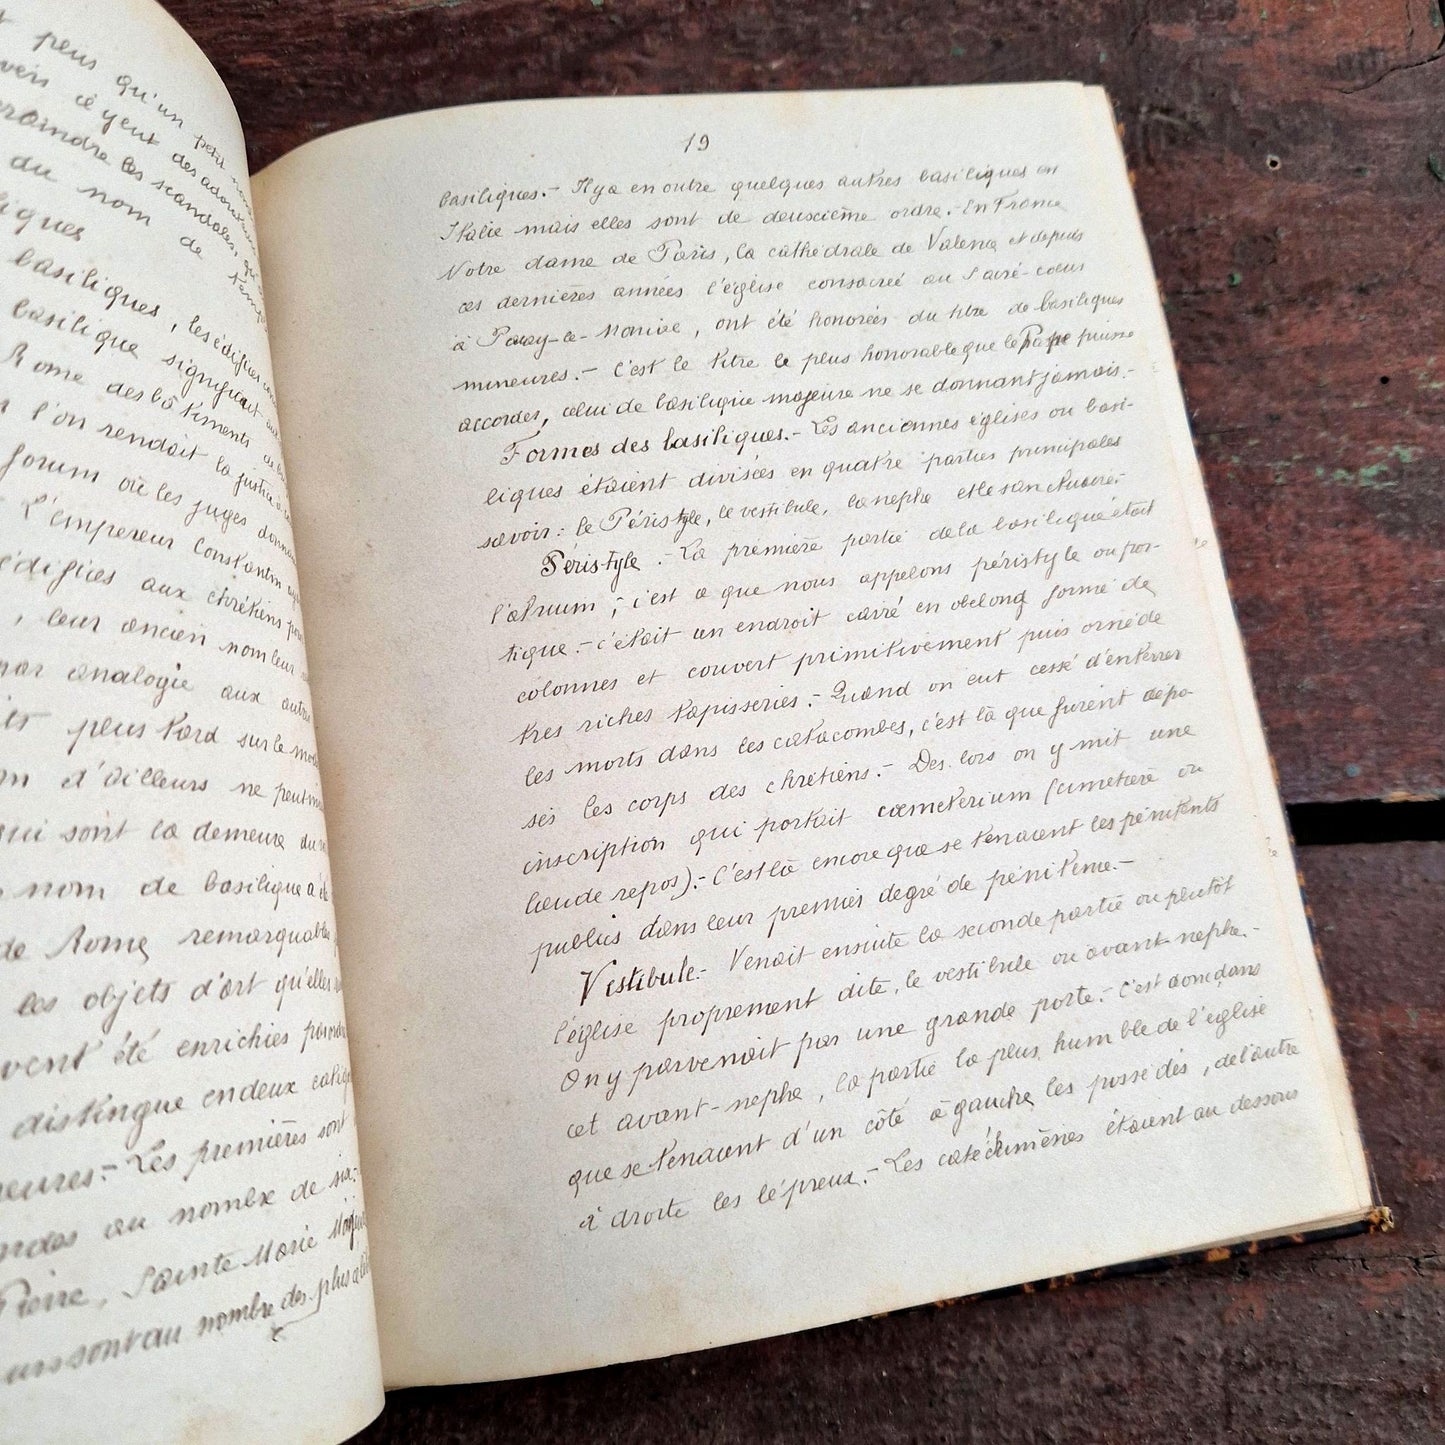 peus qu'un petit
il y eut des
les scandales, qui
du nom de
basiliques, les édifices
basilique signifiait
Rome des bâtiments
l'on rendait la justice
forum où les juges
L'empereur Constantin
édifices aux chrétiens
, leur ancien nom leur
par analogie aux autres
plus tard sur le
d'ailleurs ne
qui sont la demeure du
nom de basilique a
de Rome remarquables
les objets d'art qu'elles
été enrichies
distingue en deux
Les premières sont
au nombre de six.
Pierre, Sainte Marie
sont au nombre des plus
19
basiliques.- Il y a en outre quelques autres basiliques en
Italie mais elles sont de deuxième ordre.- En France
Notre dame de Paris, la cathédrale de Valence et depuis
ces dernières années l'église consacrée au Sacré-coeur
à Paray-le-Monial, ont été honorées du titre de basiliques
mineures.- C'est le titre le plus honorable que le Pape puisse
accorder, celui de basilique majeure ne se donnant jamais.-
Formes des basiliques.- Les anciennes églises ou basi-
liques étaient divisées en quatre parties principales
savoir: le Péristyle, le vestibule, la nephe et le sanctuaire.-
Péristyle.- La première partie de la basilique était
l'atrium; c'est ce que nous appelons péristyle ou por-
tique.- C'était un endroit carré en oblong formé de
colonnes et couvert primitivement puis orné de
très riches tapisseries.- Quand on eut cessé d'enterrer
les morts dans les catacombes, c'est là que furent dépo-
sés les corps des chrétiens.- Dès lors on y mit une
inscription qui portait cœmeterium (cimetière ou
lieu de repos).- C'est là encore que se tenaient les pénitents
publics dans leur premier degré de pénitence.-
Vestibule.- Venait ensuite la seconde partie ou plutôt
l'église proprement dite, le vestibule ou avant-nephe.-
On y parvenait par une grande porte.- C'est donc dans
cet avant-nephe, la partie la plus humble de l'église
que se tenaient d'un côté à gauche les possédés, de l'autre
à droite les lépreux.- Les catéchumènes étaient au dessous